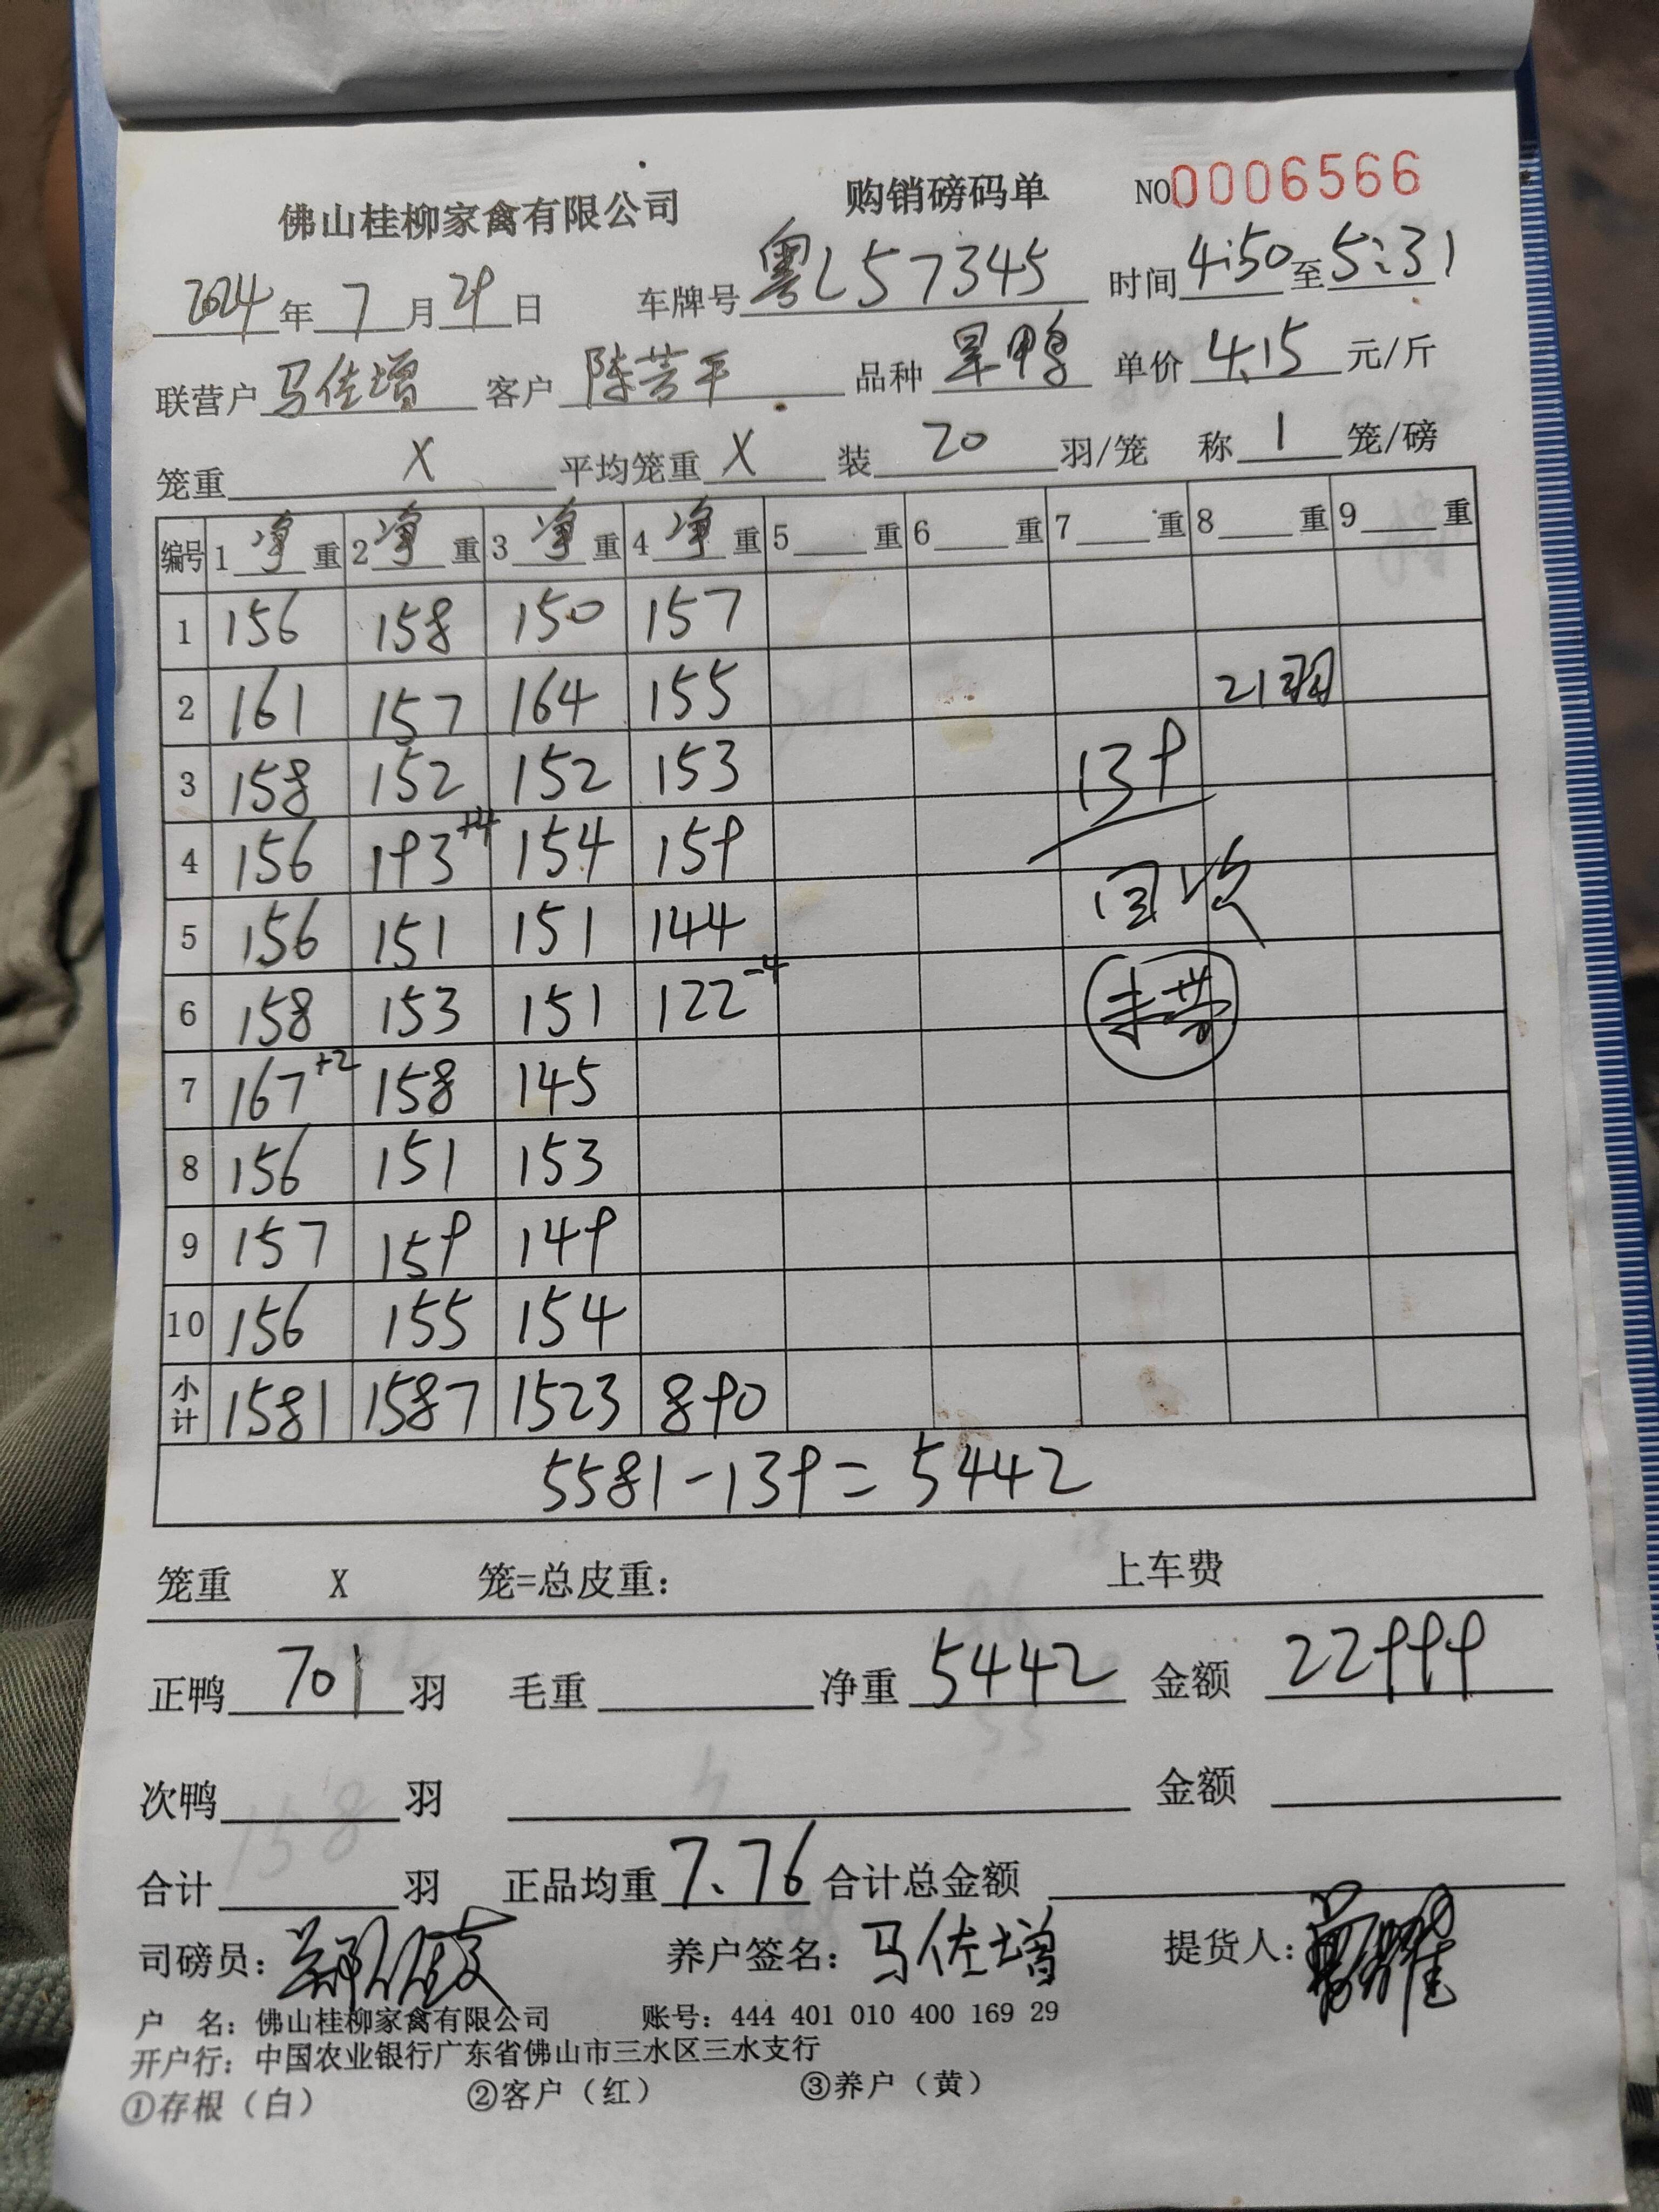 佛山桂柳家禽有限公司 购销磅码单 NO 0006566
2024年7月29日 车牌号 粤L57345 时间 4:50 至 5:31
联营户 马佐增 客户 陈芳平 品种 旱鸭 单价 4.15 元/斤
笼重 X 平均笼重 X 装 20 羽/笼 称 1 笼/磅
编号 1 净 重 2 净 重 3 净 重 4 净 重 5 重 6 重 7 重 8 重 9 重
1 156 158 150 157
2 161 157 164 155 21羽
3 158 152 152 153 139
4 156 193+4 154 159
5 156 151 151 144 回收
6 158 153 151 122-4
7 167+2 158 145
8 156 151 153
9 157 159 149
10 156 155 154
小计 1581 1587 1523 890
5581-139=5442
笼重 X 笼=总皮重: 上车费
正鸭 701 羽 毛重 净重 5442 金额 22999
次鸭 羽 金额
合计 羽 正品均重 7.76 合计总金额
司磅员: 养户签名: 马佐增 提货人:
户 名: 佛山桂柳家禽有限公司 账号: 444 401 010 400 169 29
开户行: 中国农业银行广东省佛山市三水区三水支行
①存根（白） ②客户（红） ③养户（黄）